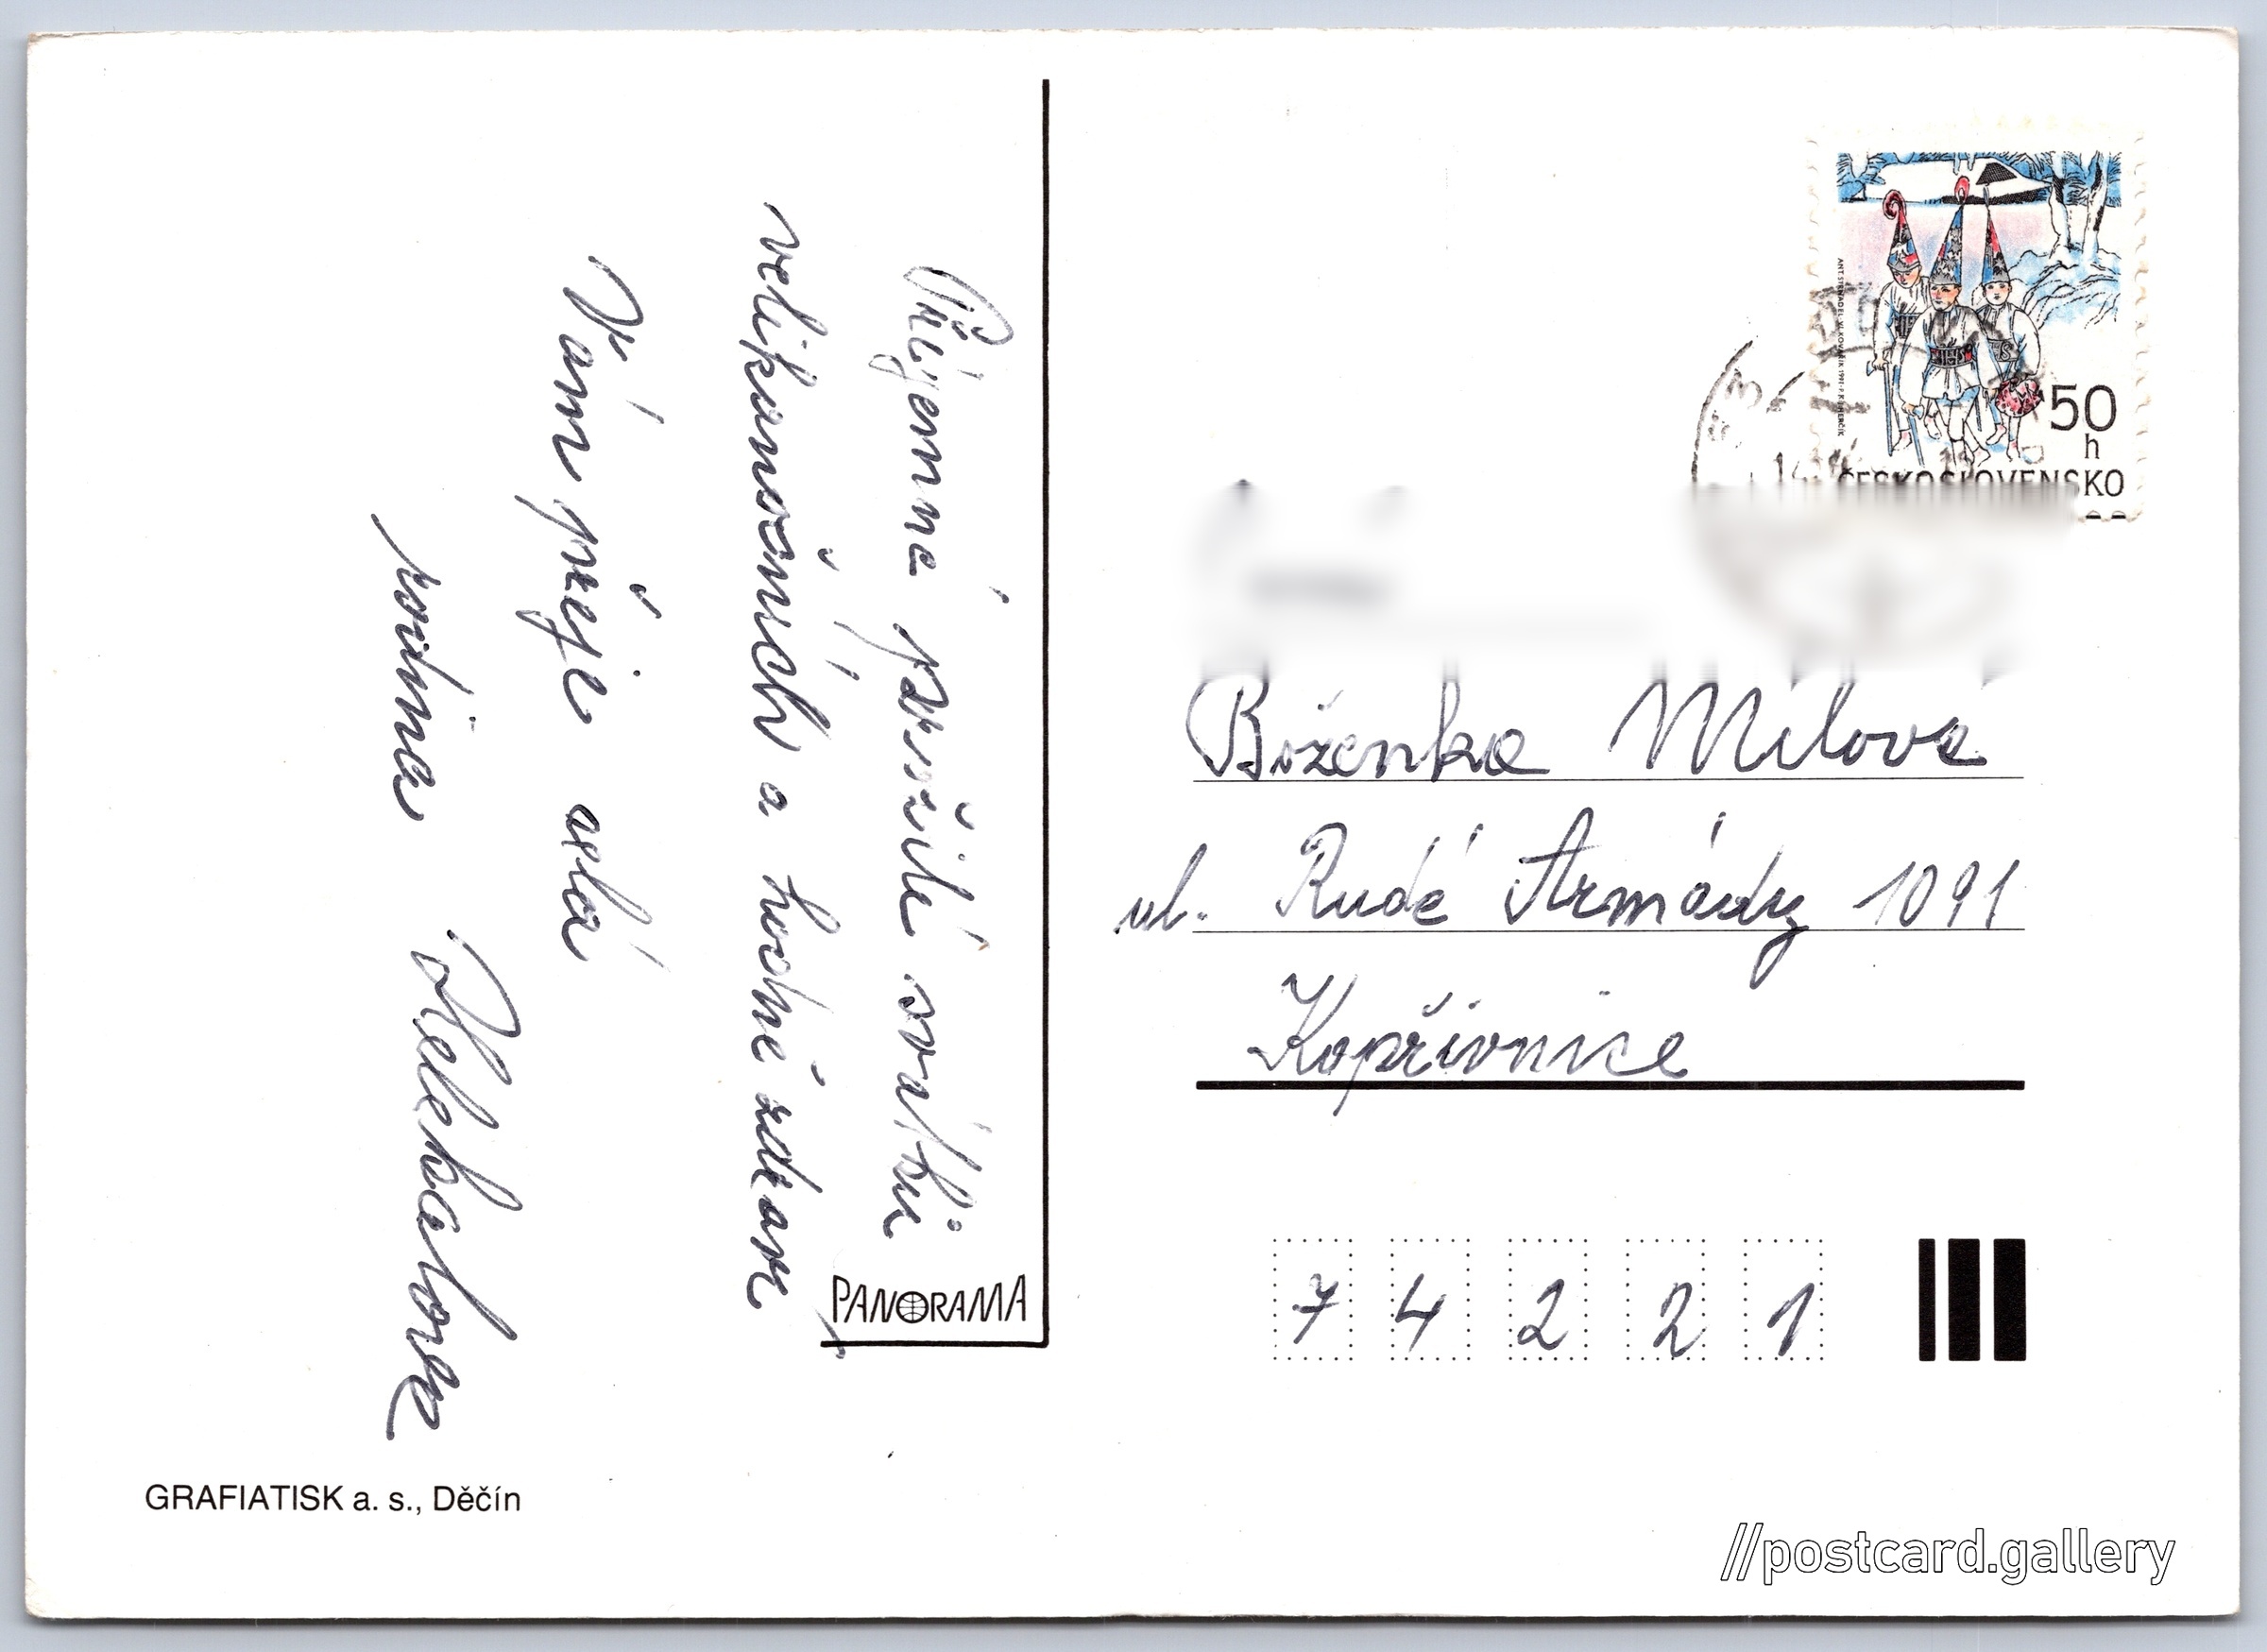 Příjemné prožití svátků
velikonočních a hodně zdraví
Vám přeje celá
rodina
PANORAMA
GRAFIATISK a. s., Děčín
50
h
ČESKOSLOVENSKO
Boženka Mílová
ul. Rudé Armády 1091
Kopřivnice
7 4 2 2 1
//postcard.gallery